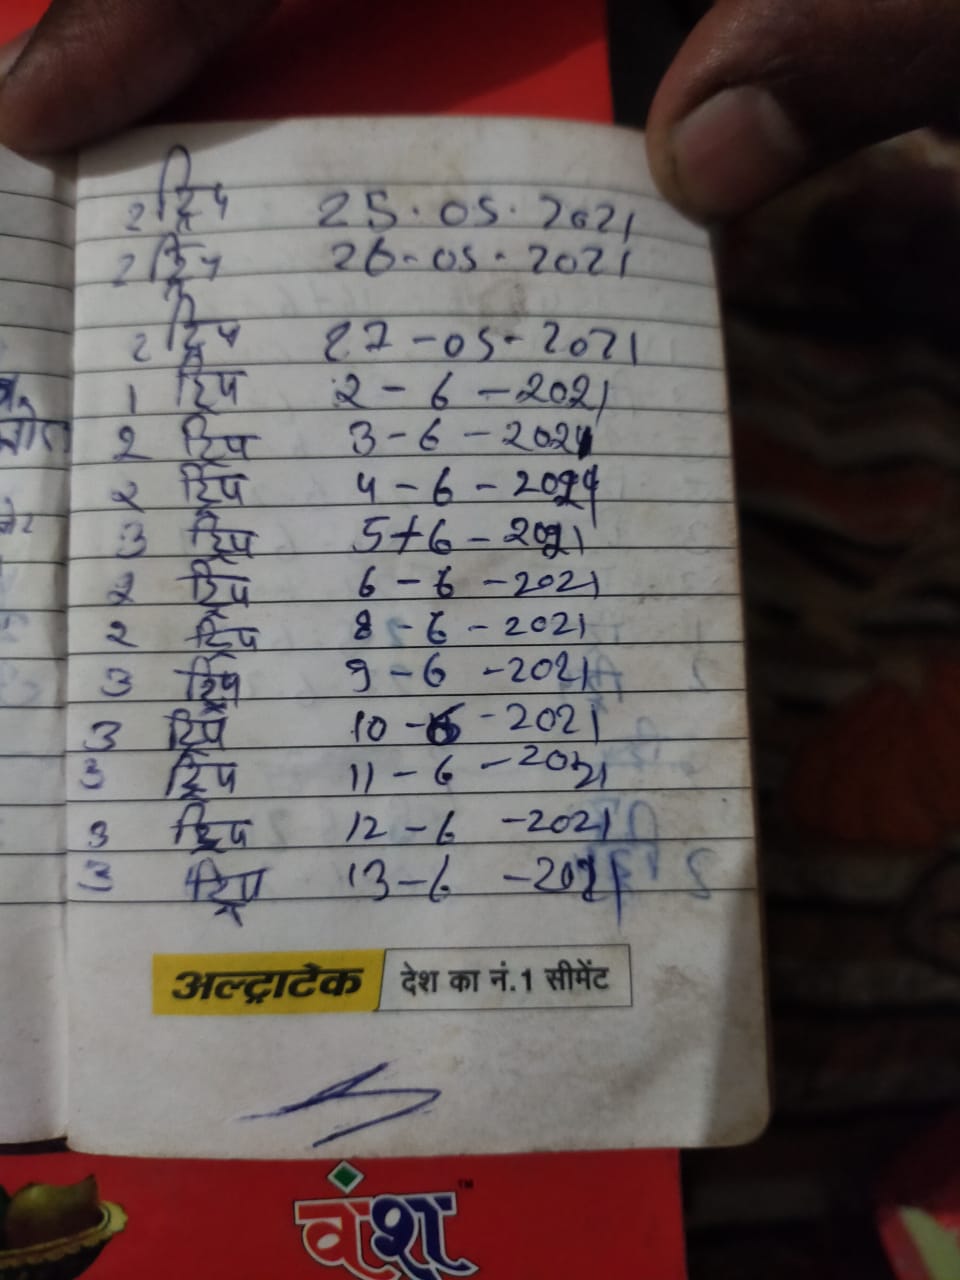 2 ट्रिप 25.05.2021
2 ट्रिप 26-05-2021
2 ट्रिप 27-05-2021
1 ट्रिप 2-6-2021
2 ट्रिप 3-6-2021
2 ट्रिप 4-6-2021
3 ट्रिप 5-6-2021
2 ट्रिप 6-6-2021
2 ट्रिप 8-6-2021
3 ट्रिप 9-6-2021
3 ट्रिप 10-6-2021
3 ट्रिप 11-6-2021
3 ट्रिप 12-6-2021
3 ट्रिप 13-6-2021
अल्ट्राटेक देश का नं.1 सीमेंट
वंश™